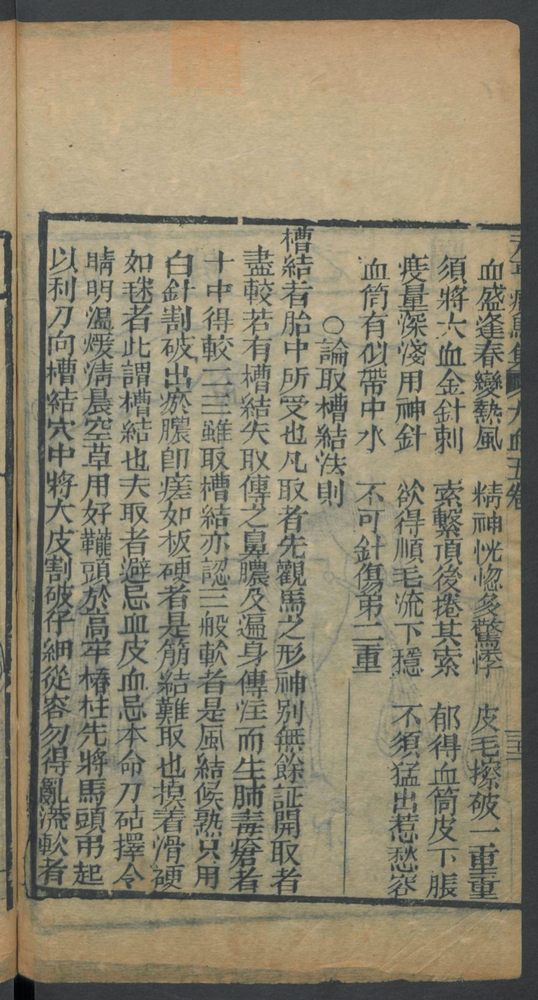 血盛逢春變熱風　精神恍惚多驚悸　皮毛擦破一重重
須將六血金針刺　索繫項後捲其索　郁得血筒皮下脹
度量深淺用神針　欲得順毛流下穩　不須猛出惹愁容
血筒有似帶中水　不可針傷第二重
○論取槽結法則
槽結者胎中所受也凡取者先觀馬之形神別無餘証開取者
盡較若有槽結失取傳之鼻膿及遍身傳注而生肺毒瘡者
十中得較二三雖取槽結亦認三般軟者是風結候熟只用
白針割破出瘀膿即瘥如板硬者是筋結難取也摸着滑硬
如毬者此謂槽結也夫取者避忌血皮血忌本命刀砧擇令
晴明溫煖清晨空草用好韁頭於高牢樁柱先將馬頭弔起
以利刀向槽結穴中將大皮割破仔細從容勿得亂流軟者